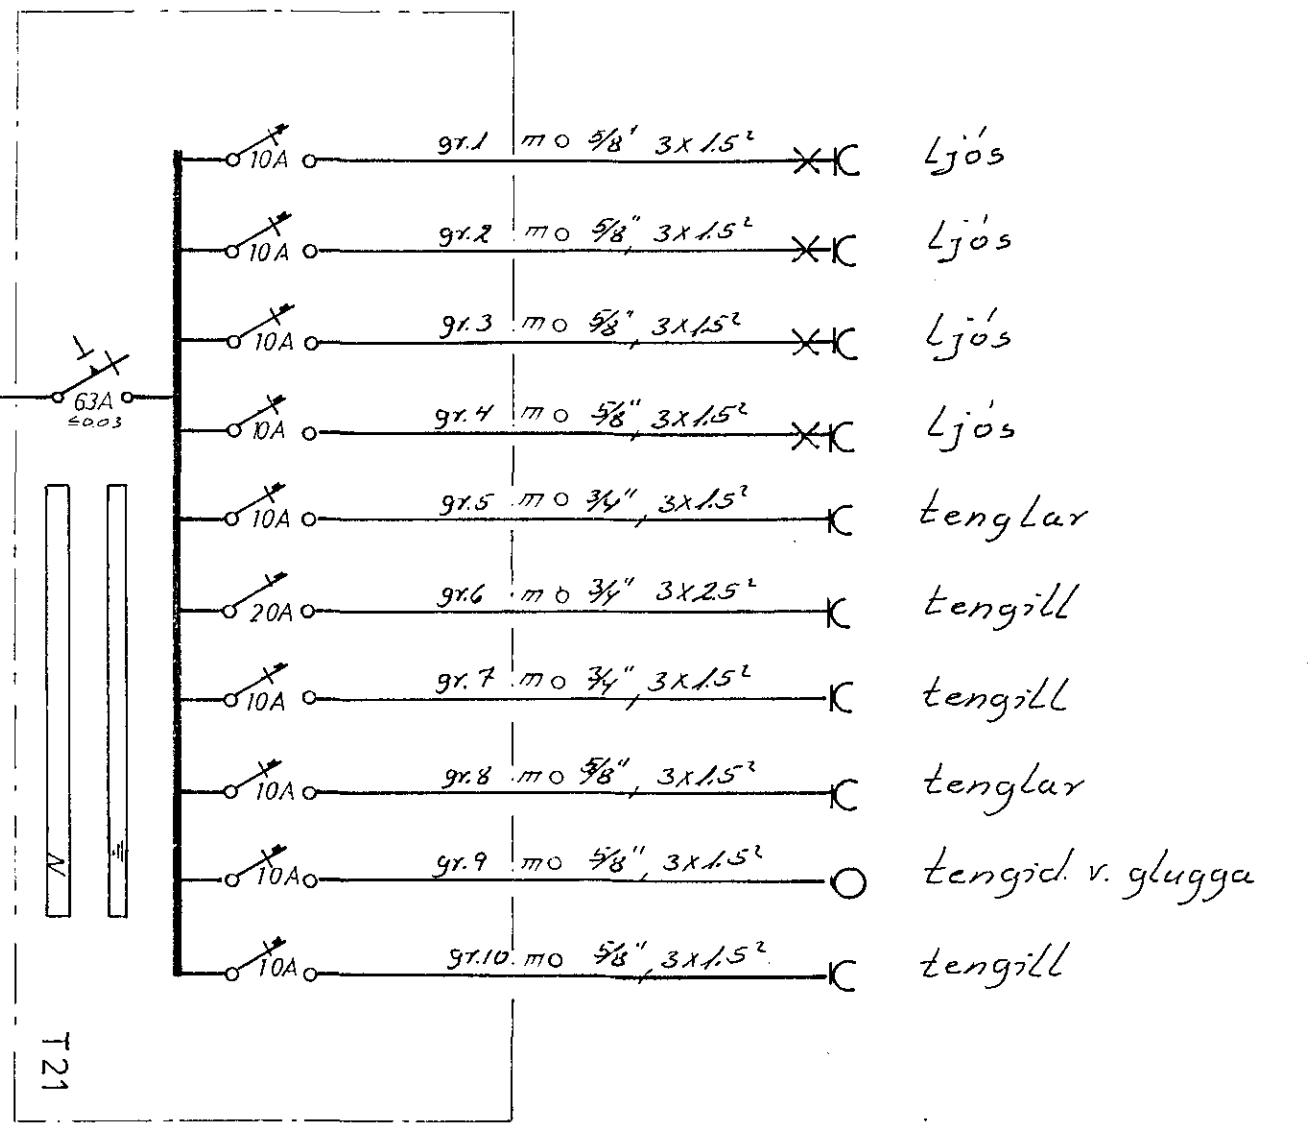 10A gr.1 m o 5/8" 3x1.5² Ljós
10A gr.2 m o 5/8", 3x1.5² Ljós
10A gr.3 m o 5/8", 3x1.5² Ljós
63A
≤0.03
10A gr.4 m o 5/8", 3x1.5² Ljós
10A gr.5 m o 3/4", 3x1.5² tenglar
20A gr.6 m o 3/4" 3x2.5² tengill
10A gr.7 m o 3/4", 3x1.5² tengill
10A gr.8 m o 5/8", 3x1.5² tenglar
N
10A gr.9 m o 5/8", 3x1.5² tengid. v. glugga
10A gr.10 m o 5/8", 3x1.5² tengill
T21